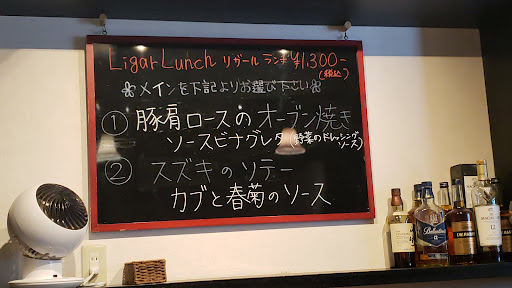 Ligar Lunch リガール ランチ ¥1,300-
(税込)
メインを下記よりお選び下さい
① 豚肩ロースのオーブン焼き
ソースビナグレタ(野菜のドレッシングソース)
② スズキのソテー
カブと春菊のソース
Ballantine's
12